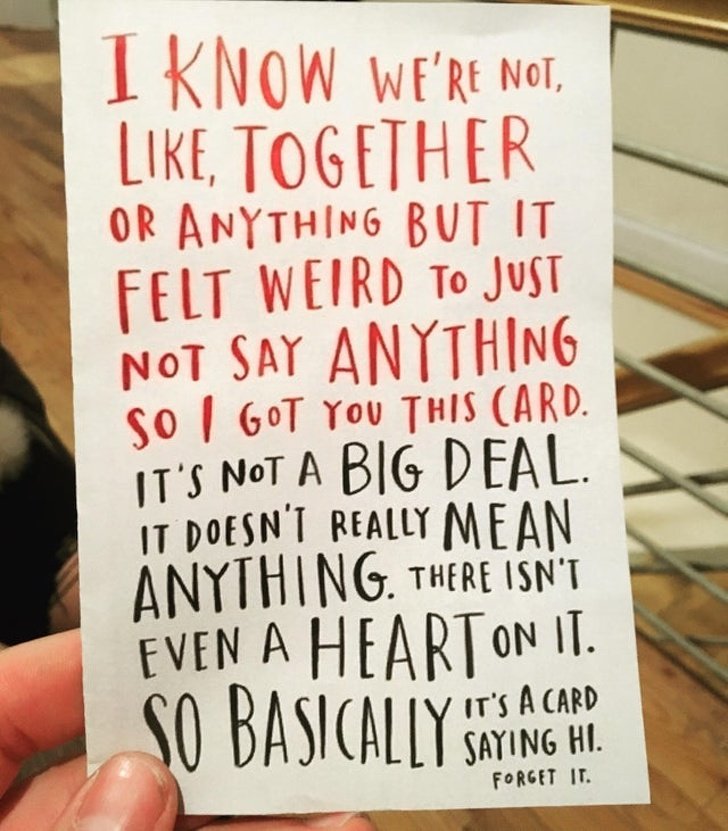 I KNOW WE'RE NOT,
LIKE, TOGETHER
OR ANYTHING BUT IT
FELT WEIRD TO JUST
NOT SAY ANYTHING
SO I GOT YOU THIS CARD.
IT'S NOT A BIG DEAL.
IT DOESN'T REALLY MEAN
ANYTHING. THERE ISN'T
EVEN A HEART ON IT.
SO BASICALLY IT'S A CARD
SAYING HI.
FORGET IT.